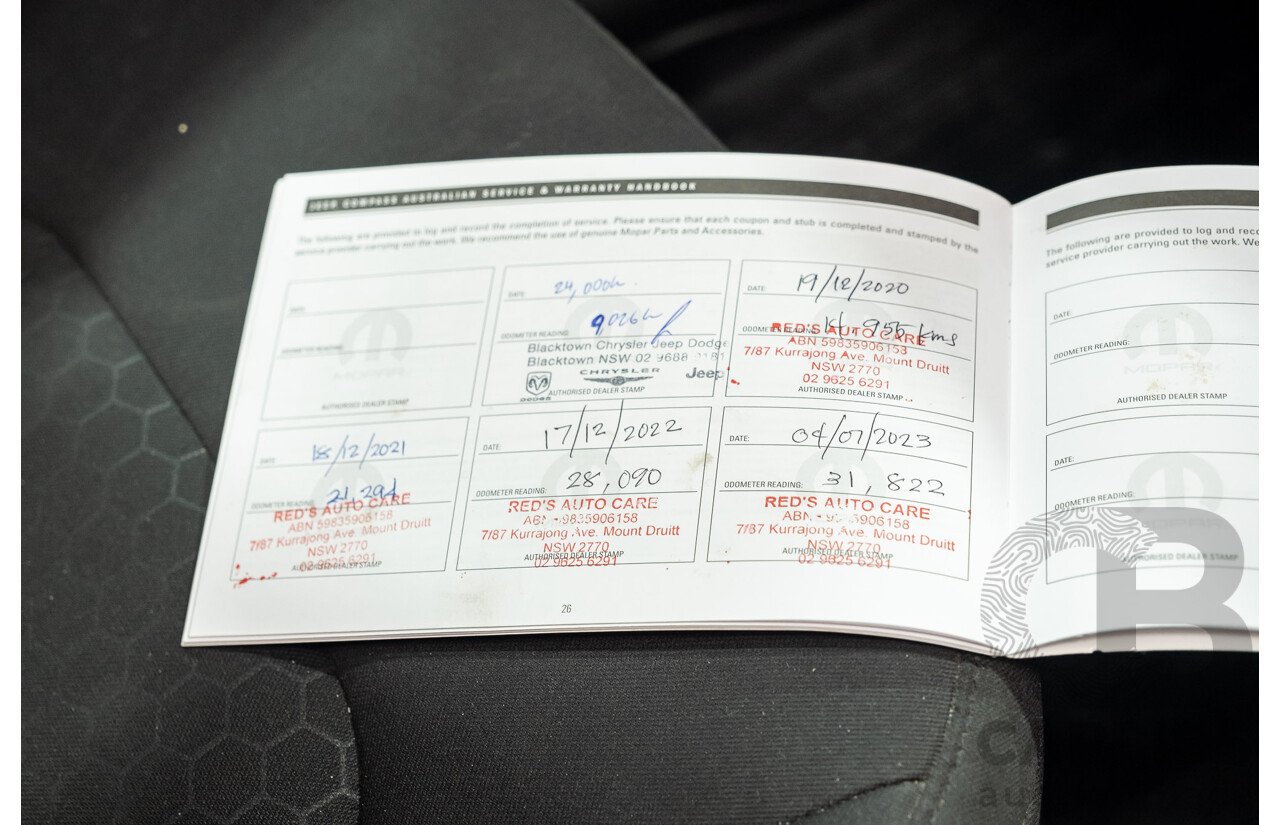 COMPASS AUSTRALIAN SERVICE & WARRANTY HANDBOOK
The following are provided to log and record the completion of service. Please ensure that each coupon and stub is completed and stamped by the
service provider carrying out the work. We recommend the use of genuine Mopar Parts and Accessories.
DATE:
ODOMETER READING:
MOPAR
AUTHORISED DEALER STAMP
DATE: 24,000k
ODOMETER READING:
Blacktown Chrysler Jeep Dodge
Blacktown NSW 02 9688
CHRYSLER
Jeep
DODGE
AUTHORISED DEALER STAMP
DATE: 19/12/2020
ODOMETER READING: 955 kms
RED'S AUTO CARE
ABN 59835906158
7/87 Kurrajong Ave. Mount Druitt
NSW 2770
02 9625 6291
AUTHORISED DEALER STAMP
DATE: 18/12/2021
ODOMETER READING: 21,294
RED'S AUTO CARE
ABN 59835906158
7/87 Kurrajong Ave. Mount Druitt
NSW 2770
02 9625 6291
AUTHORISED DEALER STAMP
DATE: 17/12/2022
ODOMETER READING: 28,090
RED'S AUTO CARE
ABN 9835906158
7/87 Kurrajong Ave. Mount Druitt
NSW 2770
AUTHORISED DEALER STAMP
02 9625 6291
DATE: 04/07/2023
ODOMETER READING: 31,822
RED'S AUTO CARE
ABN 5906158
7/87 Kurrajong Ave. Mount Druitt
NSW 2770
AUTHORISED DEALER STAMP
02 9625 6291
26
The following are provided to log and reco
service provider carrying out the work. We
DATE:
ODOMETER READING:
MOPAR
AUTHORISED DEALER STAMP
DATE:
ODOMETER READING:
MOPAR
AUTHORISED DEALER STAMP